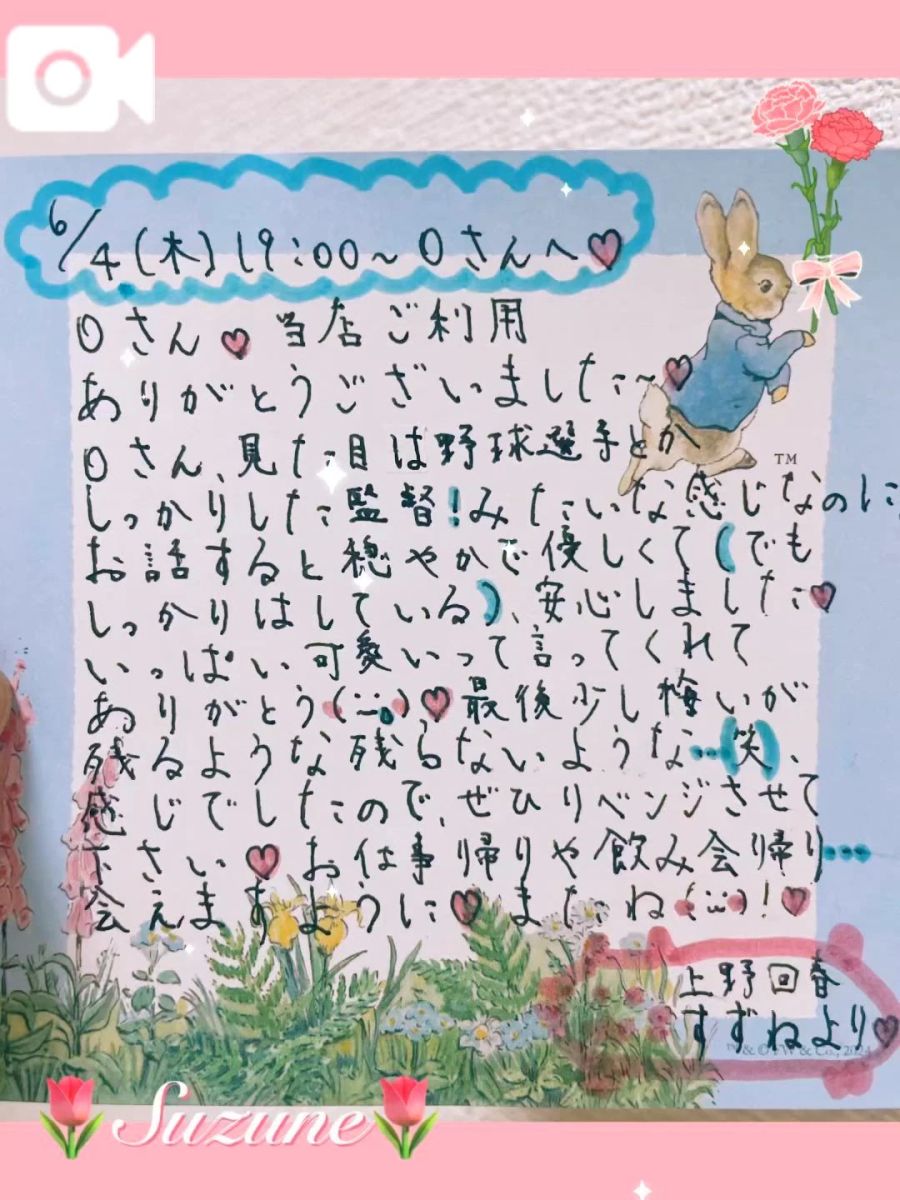 6/4(木)19:00~Oさんへ♡
Oさん♡当店ご利用
ありがとうございました~♡
Oさん、見た目は野球選手とか
TM
しっかりした監督!みたいな感じなのに、
お話すると穏やかで優しくて(でも
しっかりはしている)、安心しました♡
いっぱい可愛いって言ってくれて
ありがとう(¨̮)♡最後少し悔いが
残るような残らないような…(笑)、
感じでしたので、ぜひリベンジさせて
下さい♡お仕事帰りや飲み会帰り…
会えますように♡またね(¨̮)!♡
上野回春
すずねより♡
Suzune